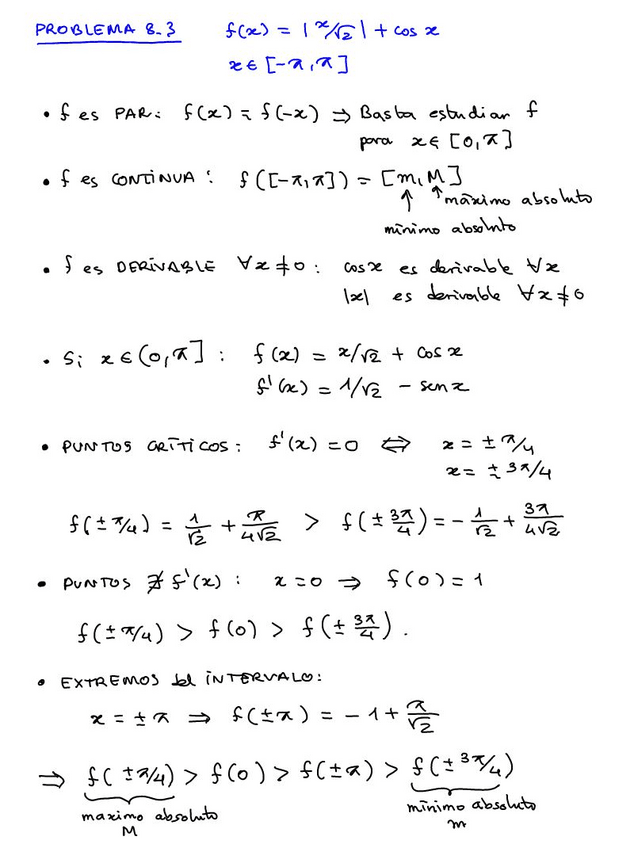 PROBLEMA 8.3 f(x) = |x/√2| + cos x
x ∈ [-π, π]
• f es PAR: f(x) = f(-x) ⇒ Basta estudiar f
para x ∈ [0, π]
• f es CONTINUA: f([-π, π]) = [m, M]
↑ ↑ máximo absoluto
mínimo absoluto
• f es DERIVABLE ∀x ≠ 0: cos x es derivable ∀x
|x| es derivable ∀x ≠ 0
• Si x ∈ (0, π]: f(x) = x/√2 + cos x
f'(x) = 1/√2 - sen x
• PUNTOS CRÍTICOS: f'(x) = 0 ⇔ x = ± π/4
x = ± 3π/4
f(± π/4) = 1/√2 + π/4√2 > f(± 3π/4) = - 1/√2 + 3π/4√2
• PUNTOS ∄ f'(x): x = 0 ⇒ f(0) = 1
f(± π/4) > f(0) > f(± 3π/4).
• EXTREMOS del INTERVALO:
x = ± π ⇒ f(± π) = - 1 + π/√2
⇒ f(± π/4) > f(0) > f(± π) > f(± 3π/4)
maximo absoluto mínimo absoluto
M m